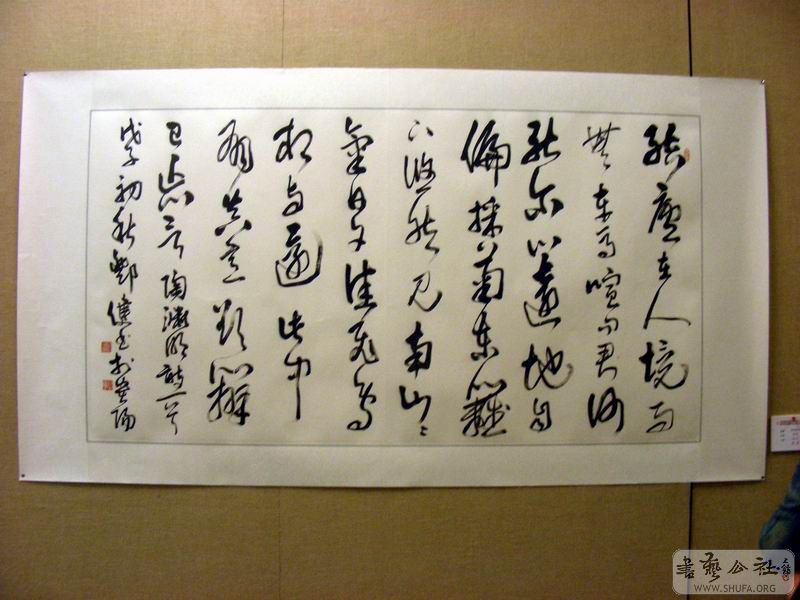 結廬在人境而
無車馬喧問君何
能尔心遠地自
偏採菊東籬
下悠然見南山〻
氣日夕佳飛鳥
相与還此中
有真意欲辨
已忘言 陶淵明詩一首
戊子初秋 健書於 陽
書藝公社
WWW.SHUFA.ORG